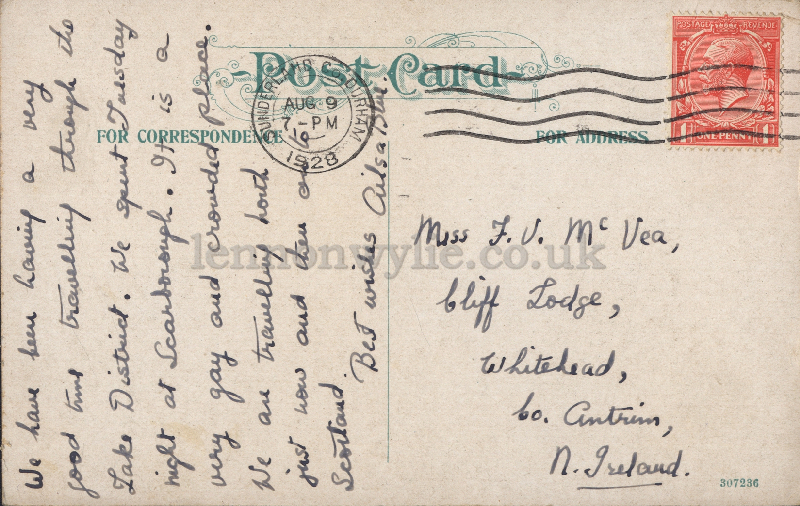 Post Card
FOR CORRESPONDENCE
FOR ADDRESS
POSTAGE REVENUE
1 ONE PENNY 1
SUNDERLAND DURHAM
AUG 9
7-PM
1928
We have been having a very
good time travelling through the
Lake District. We spent Tuesday
night at Scarborough. It is a
very gay and crowded place.
We are travelling north
just now and then on to
Scotland.
Best wishes Ailsa
Miss F. V. McVea,
Cliff Lodge,
Whitehead,
Co. Antrim,
N. Ireland.
307236
lennonwylie.co.uk